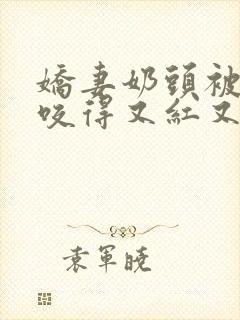 嬌妻奶頭被
咬得又紅又
袁軍曉